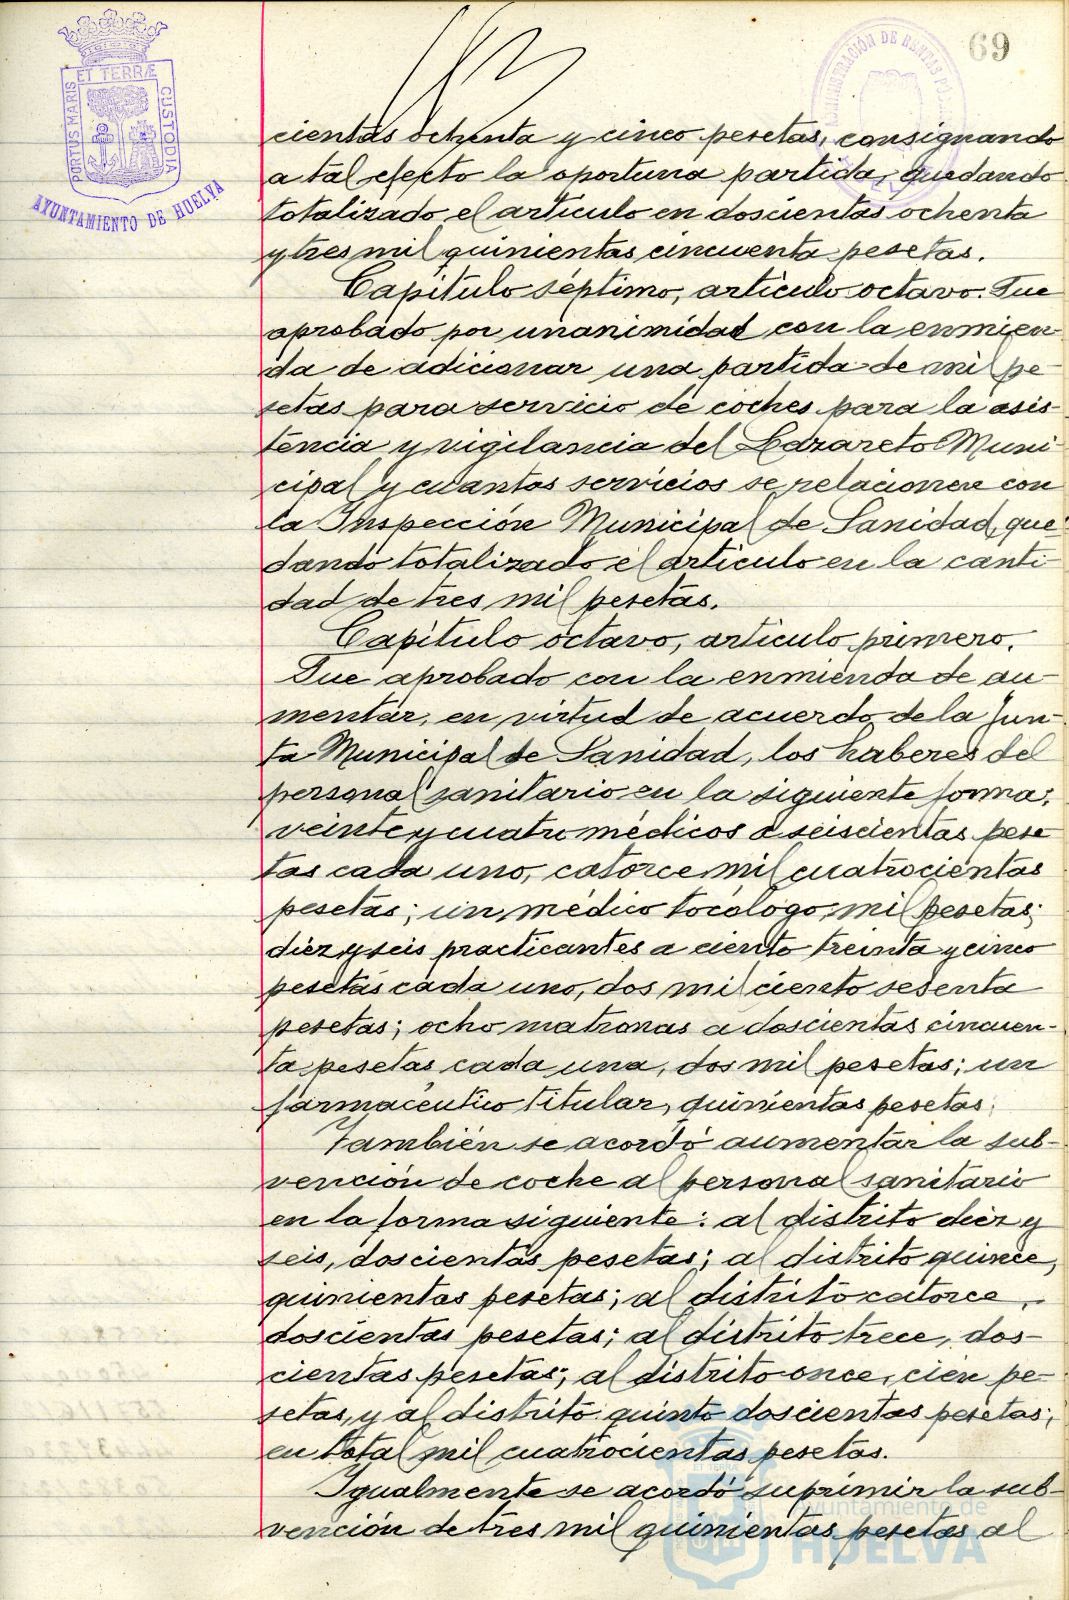 69
ET TERRÆ
PORTUS MARIS
CUSTODIA
AYUNTAMIENTO DE HUELVA
ADMINISTRACIÓN DE RENTAS
cientas ochenta y cinco pesetas, consignando
a tal efecto la oportuna partida, quedando
totalizado el artículo en doscientas ochenta
y tres mil quinientas cincuenta pesetas.
Capítulo séptimo, artículo octavo. Fue
aprobado por unanimidad con la enmien-
da de adicionar una partida de mil pe-
setas para servicio de coches para la asis-
tencia y vigilancia del Lazareto Muni-
cipal y cuantos servicios se relacionen con
la Inspección Municipal de Sanidad, que-
dando totalizado el artículo en la canti-
dad de tres mil pesetas.
Capítulo octavo, artículo primero.
Fue aprobado con la enmienda de au-
mentar, en virtud de acuerdo de la Jun-
ta Municipal de Sanidad, los haberes del
personal sanitario en la siguiente forma:
veinte y cuatro médicos a seiscientas pese
tas cada uno, catorce mil cuatrocientas
pesetas; un médico tocólogo, mil pesetas;
diez y seis practicantes a ciento treinta y cinco
pesetas cada uno, dos mil ciento sesenta
pesetas; ocho matronas a doscientas cincuen-
ta pesetas cada una, dos mil pesetas; un
farmacéutico titular, quinientas pesetas.
También se acordó aumentar la sub-
vención de coche al personal sanitario
en la forma siguiente: al distrito diez y
seis, doscientas pesetas; al distrito quince,
quinientas pesetas; al distrito catorce,
doscientas pesetas; al distrito trece, dos-
cientas pesetas; al distrito once, cien pe-
setas, y al distrito quinto doscientas pesetas;
en total mil cuatrocientas pesetas.
Igualmente se acordó suprimir la sub-
vención de tres mil quinientas pesetas al
Ayuntamiento de
HUELVA